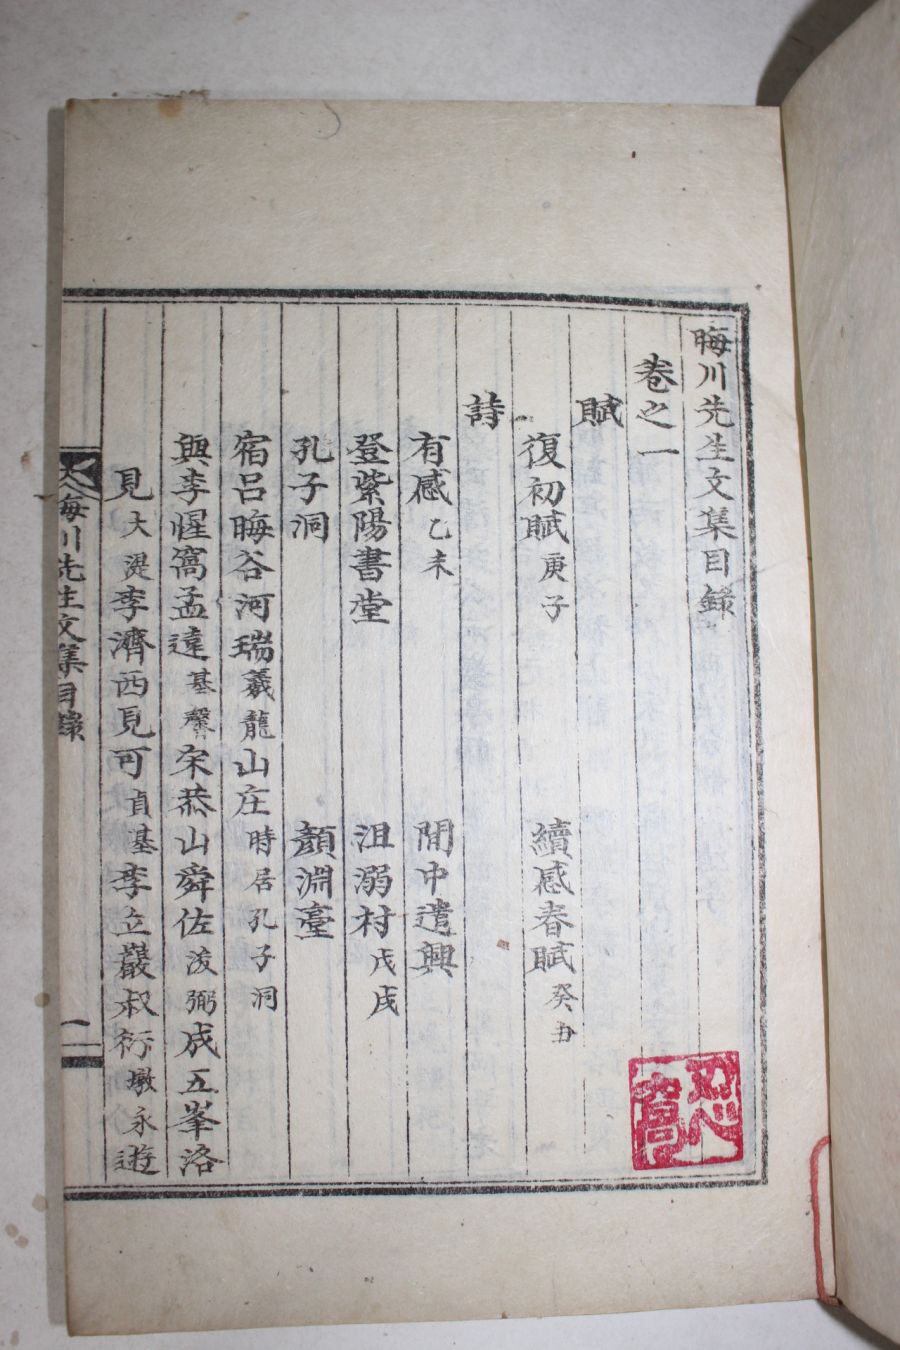 晦川先生文集目錄
卷之一
賦
復初賦 庚子 續感春賦 癸丑
詩
有感 乙未 閒中遣興
登紫陽書堂 沮溺村 戊戌
孔子洞 顏淵臺
宿呂晦谷河瑞羲龍山庄 時居孔子洞
與李惺窩孟遠 基馨 宋恭山舜佐 浚弼 成五峯洛
見 大湜 李濟西見可 貞基 李立巖叔衍 墩永 遊
晦川先生文集目錄 一
忍